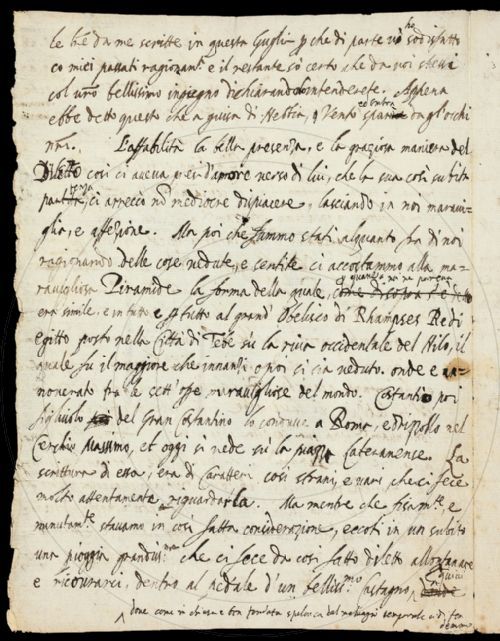 le hè da me scritte in questa Guglia p che di parte vi hò sodisfatto
co miei passati ragionam.ti e il restante sò certo che da voi stessi
col vrō bellissimo ingegno dichiarandolo intenderete. Appena
ebbe detto questo che a guisa di Nebbia, ò Vento da gl'occhi
nrī. L'affabilità la bella presenza, e la graziosa maniera del
Diletto così ci aveva presi d'amore verso di lui, che la sua così subita
ci arrecò nō mediocre dispiacere, lasciando in noi maravi-
glia, e affezione. Ma poi che fummo stati alquanto fra di noi
ragionando delle cose vedute, e sentite ci accostammo alla ma-
ravigliosa Piramide la forma della quale,
era simile, e in tutto e p tutto al grand' Obelisco di Rhampses Re di
egitto posto nella Città di Tebe sù la riva occidentale del Nilo, il
quale fu il maggiore che innanzi o poi si sia veduto. onde e an-
noverato fra le sett' ope maravigliose del mondo. Costantio poi
figliuolo del Gran Costantino lo condusse a Roma, e drizzollo nel
Cerchio Massimo, et oggi si vede sù la piazza Lateranense. La
scrittura di essa, era di Caratteri così strani, e varî che ci fece
molto attentamente riguardarla. Ma mentre che fisam.te, e
minutam.te stavamo in così fatta considerazione, eccoti in un subito
una pioggia grandiss.ma che ci fece da così fatto diletto allontanare
e ricovrarci, dentro al pedale d'un bellis.mo Castagno,
dove come in chiusa e ben fondata spelonca dal malvagio temporale ci difen
demmo